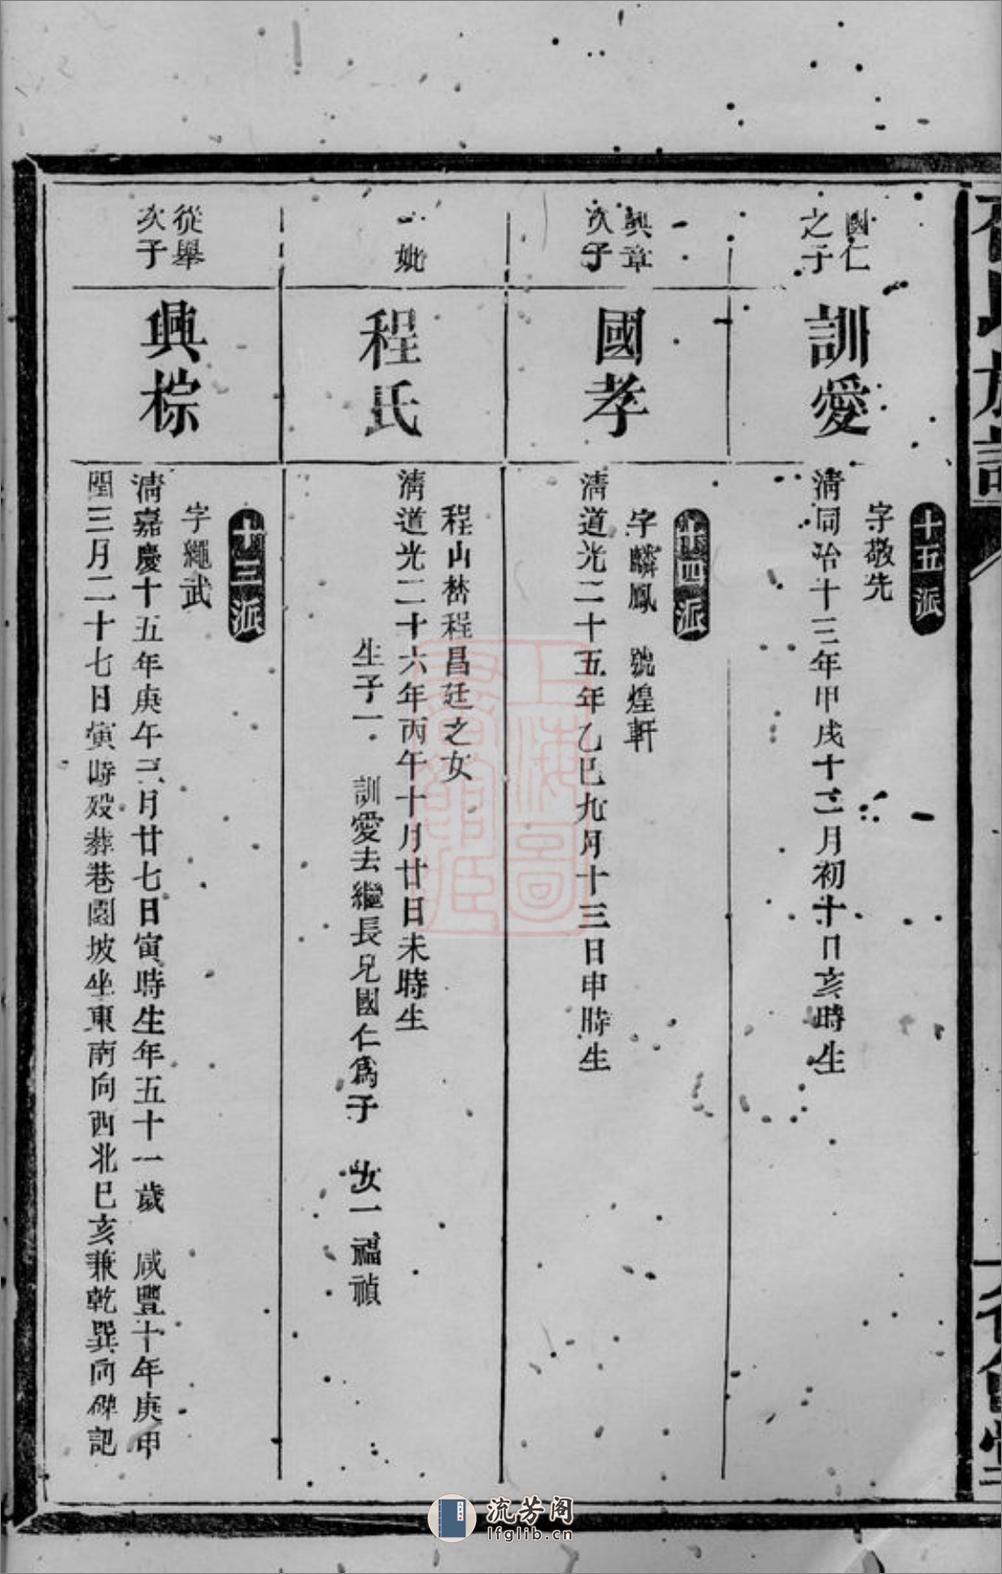 國仁
之子
訓愛
十五派
字敬先
清同治十三年甲戌十二月初十日亥時生
興章
次子
國孝
十四派
字麟鳳　號煌軒
清道光二十五年乙巳九月十三日申時生
一妣
程氏
程山程昌廷之女
清道光二十六年丙午十月廿日未時生
生子一　訓愛去繼長兄國仁爲子　女一福禎
從舉
次子
興棕
十三派
字繩武
清嘉慶十五年庚午三月廿七日寅時生年五十一歲　咸豐十年庚申
閏三月二十七日寅時歿葬巷園坡坐東南向西北巳亥兼乾巽向碑記
上海圖
流芳阁
lfglib.cn